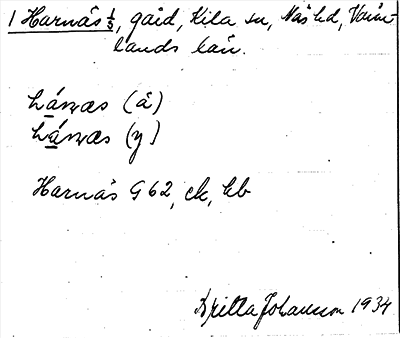 1 Harnäs 1/3, gård, Kila sn, Näs hd, Värm-
lands län.
Hárnæs (ä)
Hárnæs (y)
Harnäs G 62, ek, kb
Britta Johansson 1934